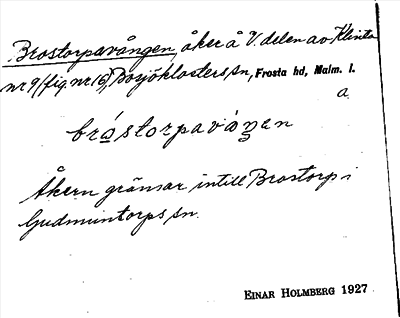 Brostorpavången, åker å V. delen av Klinta
nr 9 (fig. nr 16), Bosjöklosters sn, Frosta hd, Malm. l.
a.
bróstorpavàŋen
Åkern gränsar intill Brostorp i
Gudmuntorps sn.
EINAR HOLMBERG 1927.